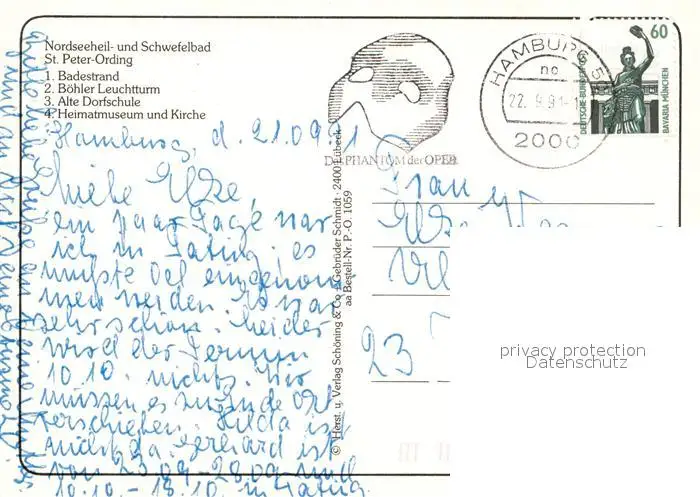 Nordseeheil- und Schwefelbad
St. Peter-Ording
1. Badestrand
2. Böhler Leuchtturm
3. Alte Dorfschule
4. Heimatmuseum und Kirche
Hamburg, d. 21.09.91
Liebe Elze,
ein paar Tage war
ich in Tating, es
mußte Oel eingenom
men werden. Es war
sehr schön. Leider
wird der Termin
10.10. nichts. Wir
müssen es zu Ende Okt
verschieben. Hilda ist
auch da. Gerhard ist
von 23.09-28.09 und
10.10-18.10. in Tating
DAS PHANTOM der OPER
HAMBURG
22.9.91
2000
60
DEUTSCHE BUNDESPOST
BAVARIA MÜNCHEN
© Herst. u. Verlag Schöning & Co + Gebrüder Schmidt · 2400 Lübeck
aa Bestell-Nr. P.-O. 1059
Frau
Elze
23
privacy protection
Datenschutz